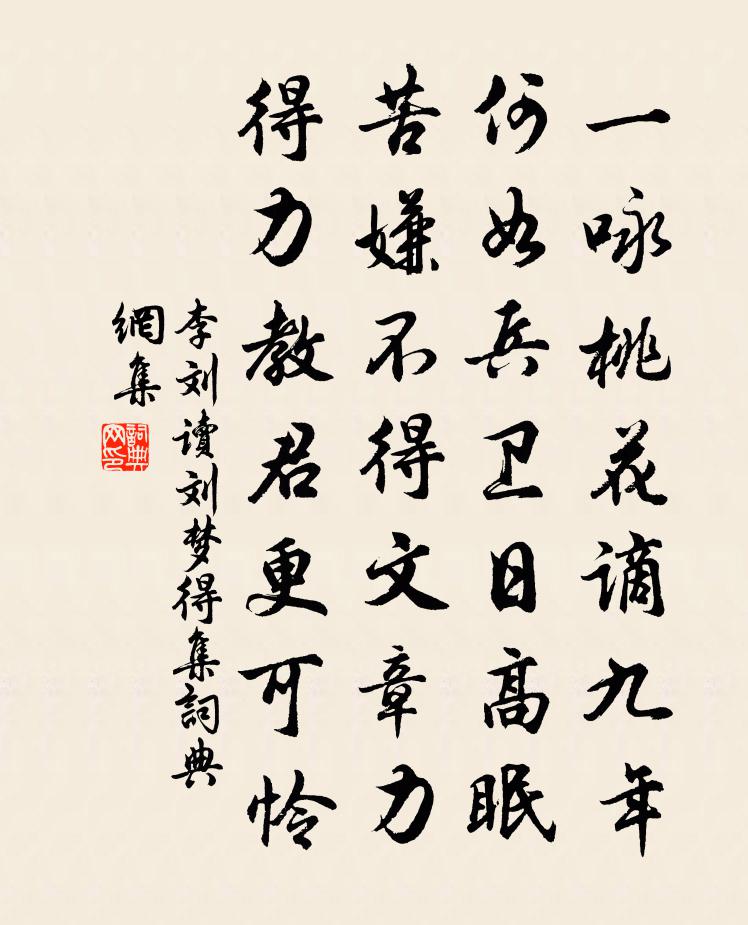 一咏桃花谪九年
何如兵卫日高眠
苦嫌不得文章力
得力教君更可怜
李刘读刘梦得集詞典
網集
詞典网印